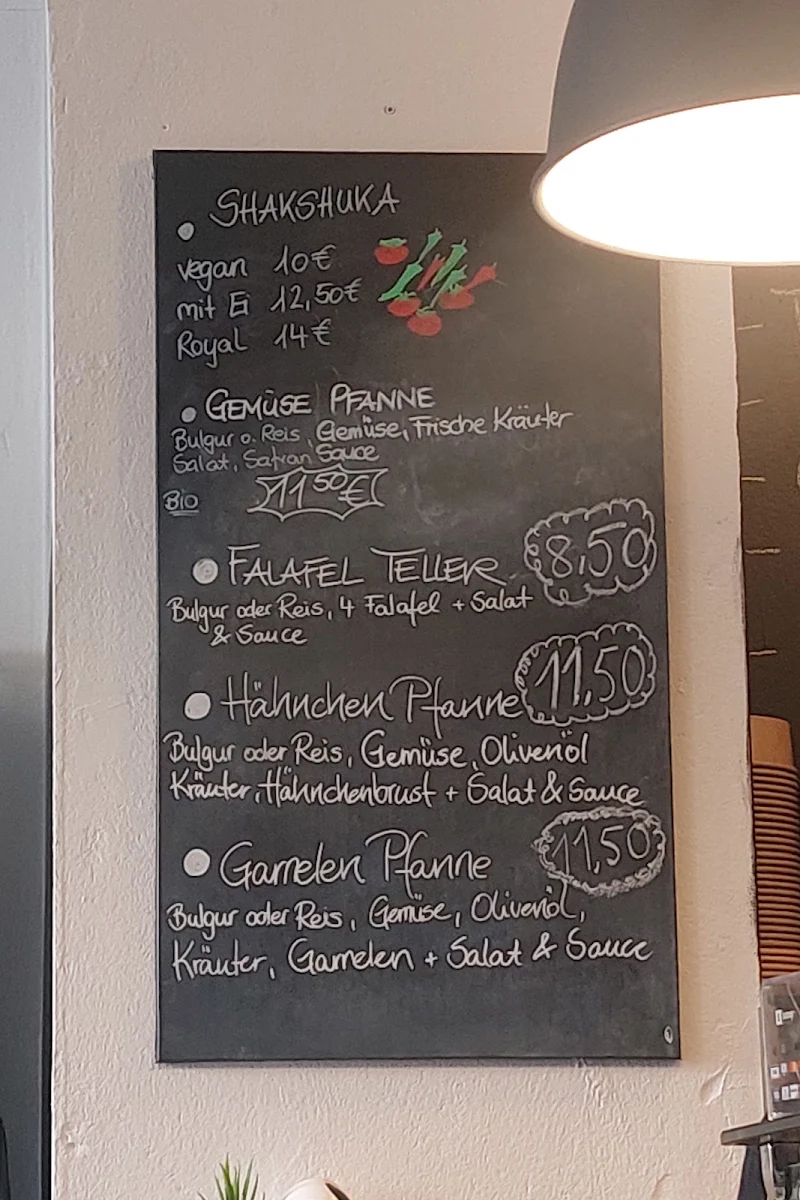 SHAKSHUKA
vegan 10€
mit Ei 12,50€
Royal 14€
GEMÜSE PFANNE
Bulgur o. Reis, Gemüse, Frische Kräuter
Salat, Safran Sauce
Bio 11⁵⁰€
FALAFEL TELLER 8,50
Bulgur oder Reis, 4 Falafel + Salat
& Sauce
Hähnchen Pfanne 11,50
Bulgur oder Reis, Gemüse, Olivenöl
Kräuter, Hähnchenbrust + Salat & Sauce
Garnelen Pfanne 11,50
Bulgur oder Reis, Gemüse, Olivenöl,
Kräuter, Garnelen + Salat & Sauce